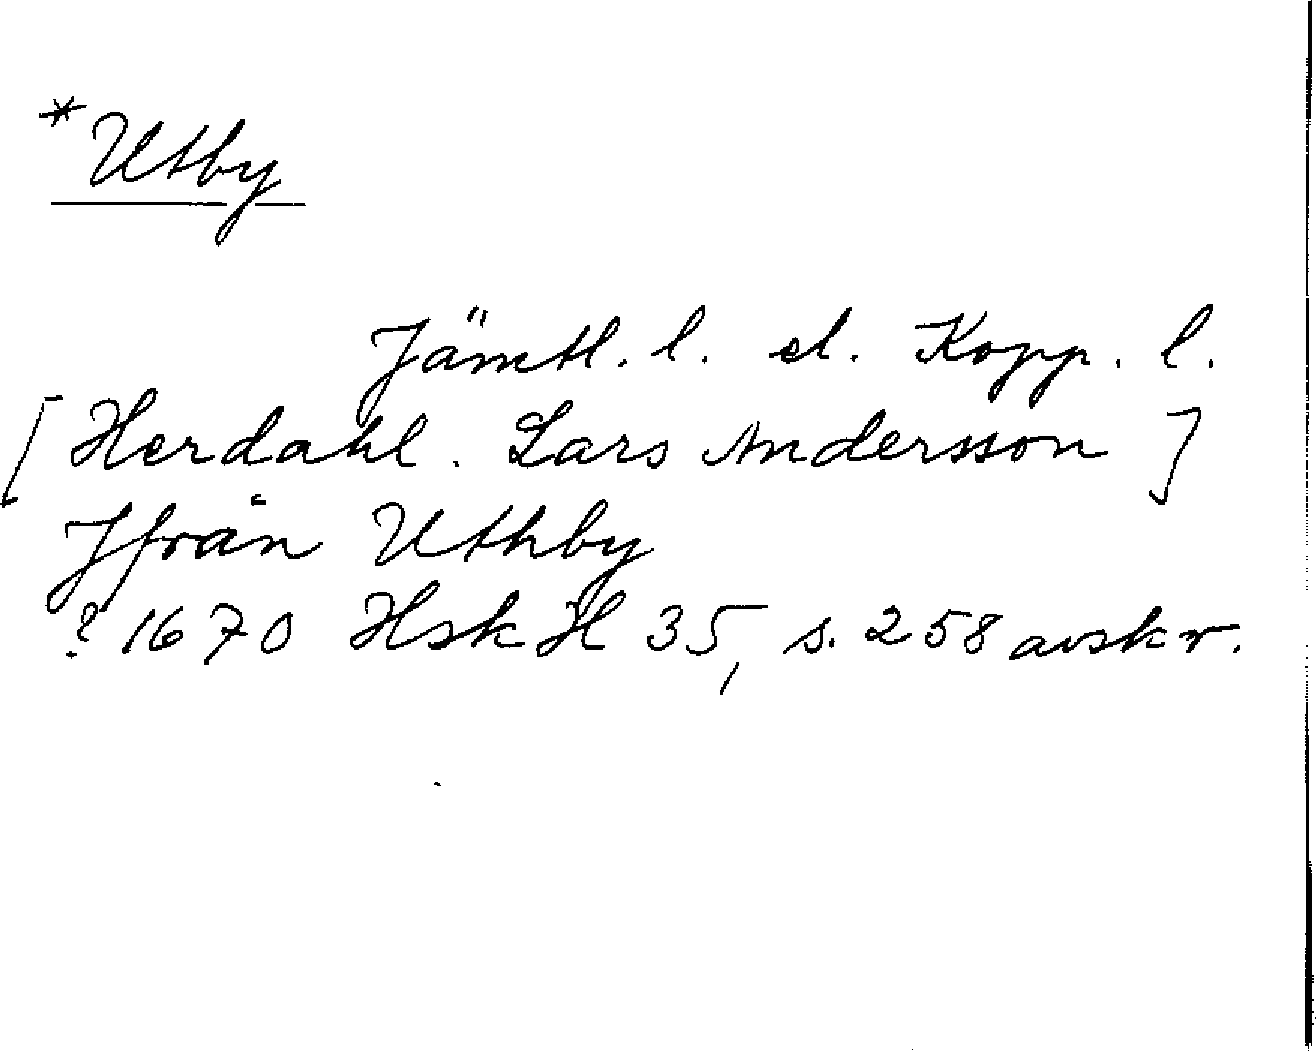 *Utby
Jämtl. l. el. Kopp. l.
[Herdahl. Lars Andersson]
Jfrån Uthby
? 1670 HskH 35, s. 258 avskr.